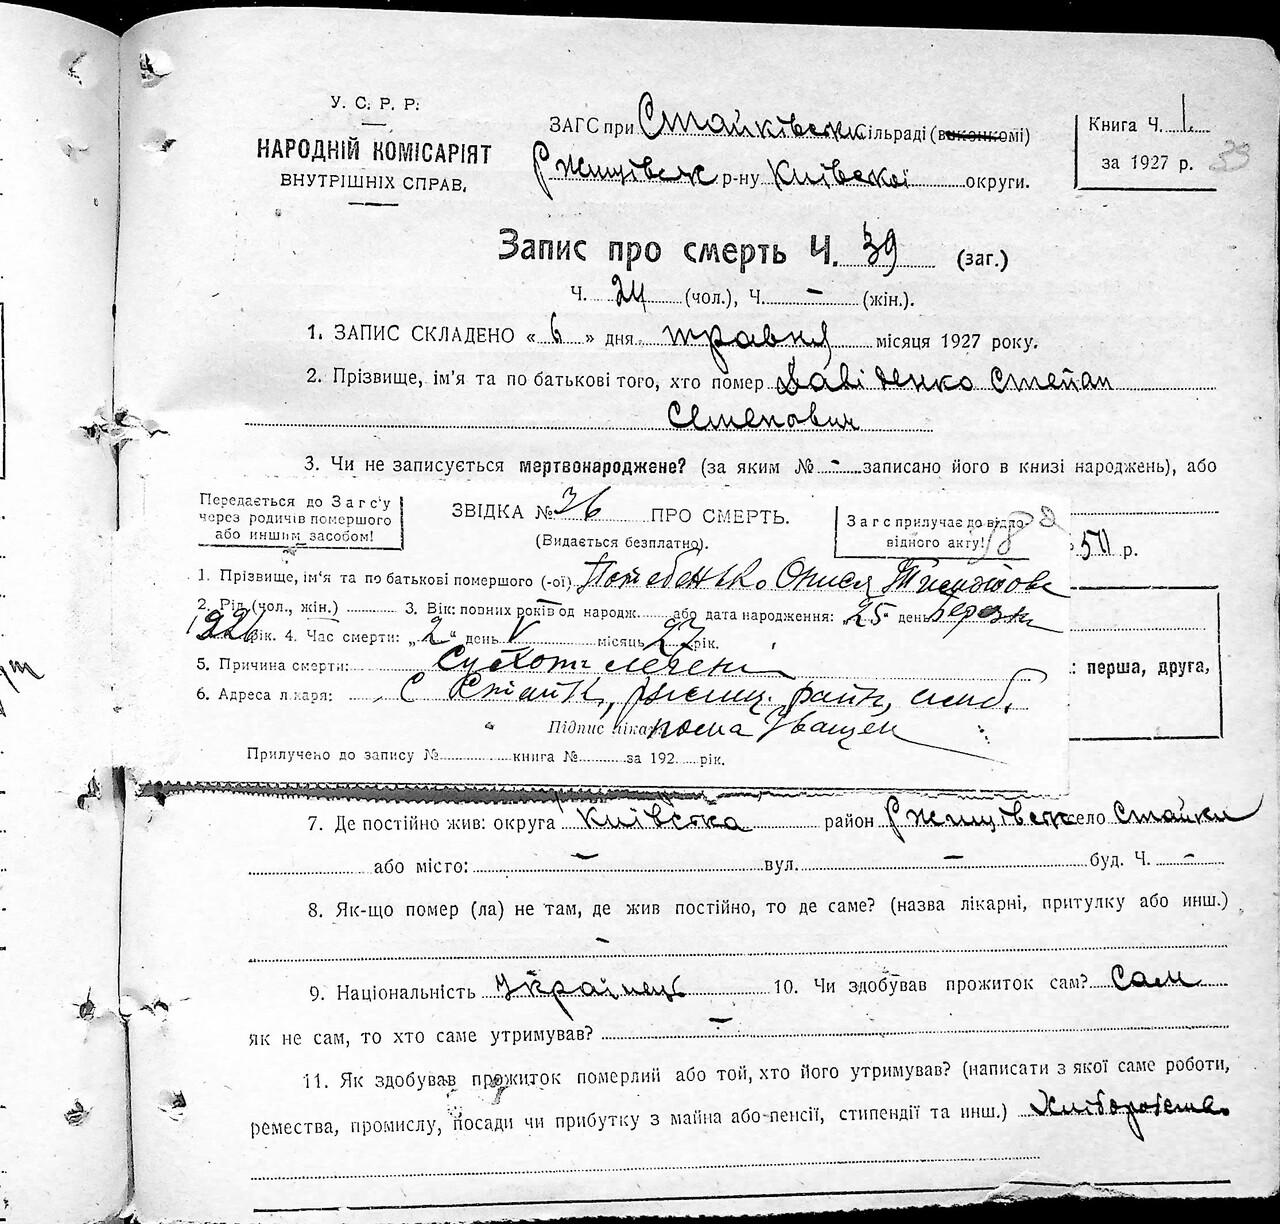 У. С. Р. Р.
НАРОДНІЙ КОМІСАРІЯТ
ВНУТРІШНІХ СПРАВ.
ЗАГС при Стайківськ ільраді (виконкомі)
Ржищівськ р-ну Київської округи.
Книга Ч. 1
за 1927 р.
39
Запис про смерть Ч. 39 (заг.)
Ч. 24 (чол.), Ч. – (жін.).
1. ЗАПИС СКЛАДЕНО « 6 » дня травня місяця 1927 року.
2. Прізвище, ім'я та по батькові того, хто помер Давіденко Степан
Семенович
3. Чи не записується мертвонароджене? (за яким № – записано його в книзі народжень), або
Передається до Загс'у
через родичів помершого
або иншим засобом!
ЗВІДКА № 36 ПРО СМЕРТЬ.
(Видається безплатно).
Загс прилучає до відпо-
відного акту!
50 р.
1. Прізвище, ім'я та по батькові помершого (-ої) Потебенько Онися
2. Рід (чол., жін.) 3. Вік: повних років од народж. або дата народження: „25 день березня
1926 вік. 4. Час смерти: „2" день V місяць 27 рік.
5. Причина смерти: Сухоти легені
: перша, друга,
6. Адреса лікаря: С Стайки, ржищ. район, амб.
Підпис ліка Іващен
Прилучено до запису № книга № за 192 рік.
7. Де постійно жив: округа Київська район Ржищівськ село Стайки
або місто: – вул. – буд. Ч. –
8. Як-що помер (ла) не там, де жив постійно, то де саме? (назва лікарні, притулку або инш.)
–
9. Національність Українець 10. Чи здобував прожиток сам? Сам
як не сам, то хто саме утримував? –
11. Як здобував прожиток померлий або той, хто його утримував? (написати з якої саме роботи,
ремества, промислу, посади чи прибутку з майна або пенсії, стипендії та инш.) Хліборобство